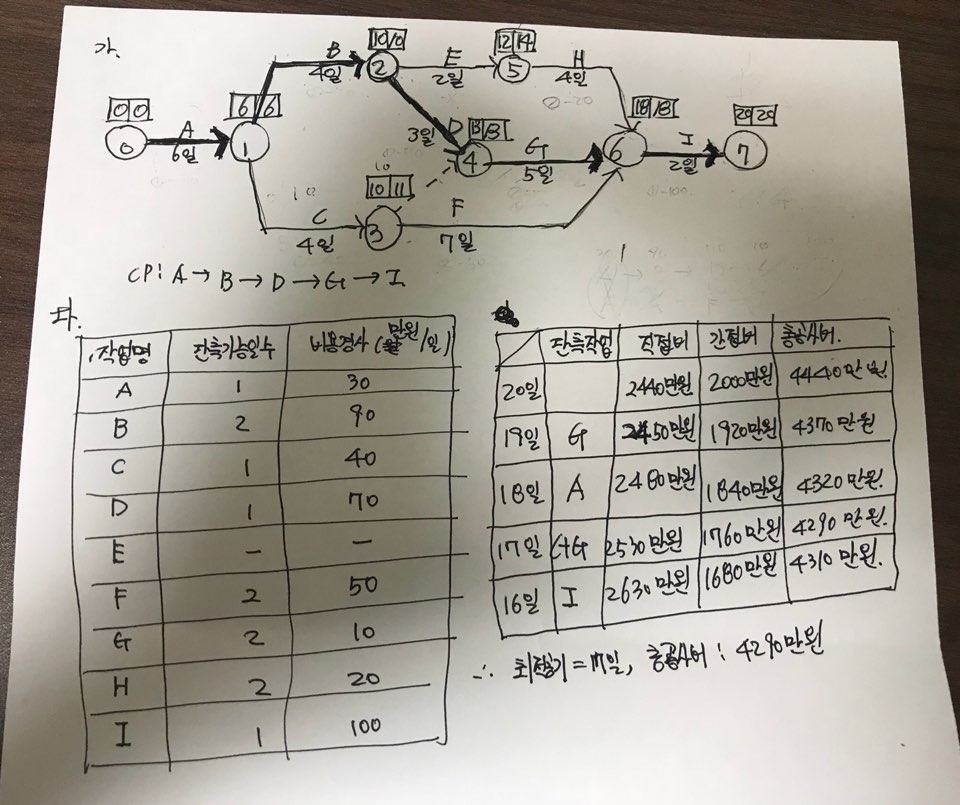 가.
0 0
0
A
6일
6 6
1
B
4일
10 10
2
E
2일
12 14
5
H
4일
D
3일
13 13
4
G
5일
18 18
6
I
2일
20 20
7
C
4일
10 11
3
F
7일
CP: A → B → D → G → I
다.
작업명 단축가능일수 비용경사 (만원/일)
A 1 30
B 2 90
C 1 40
D 1 70
E - -
F 2 50
G 2 10
H 2 20
I 1 100
단축작업 직접비 간접비 총공사비
20일 2440만원 2000만원 4440만원.
19일 G 2450만원 1920만원 4370만원
18일 A 2480만원 1840만원 4320만원.
17일 2530만원 1760만원 4290만원.
16일 I 2630만원 1680만원 4310만원.
∴ 최적공기 = 17일, 총공사비 : 4290만원